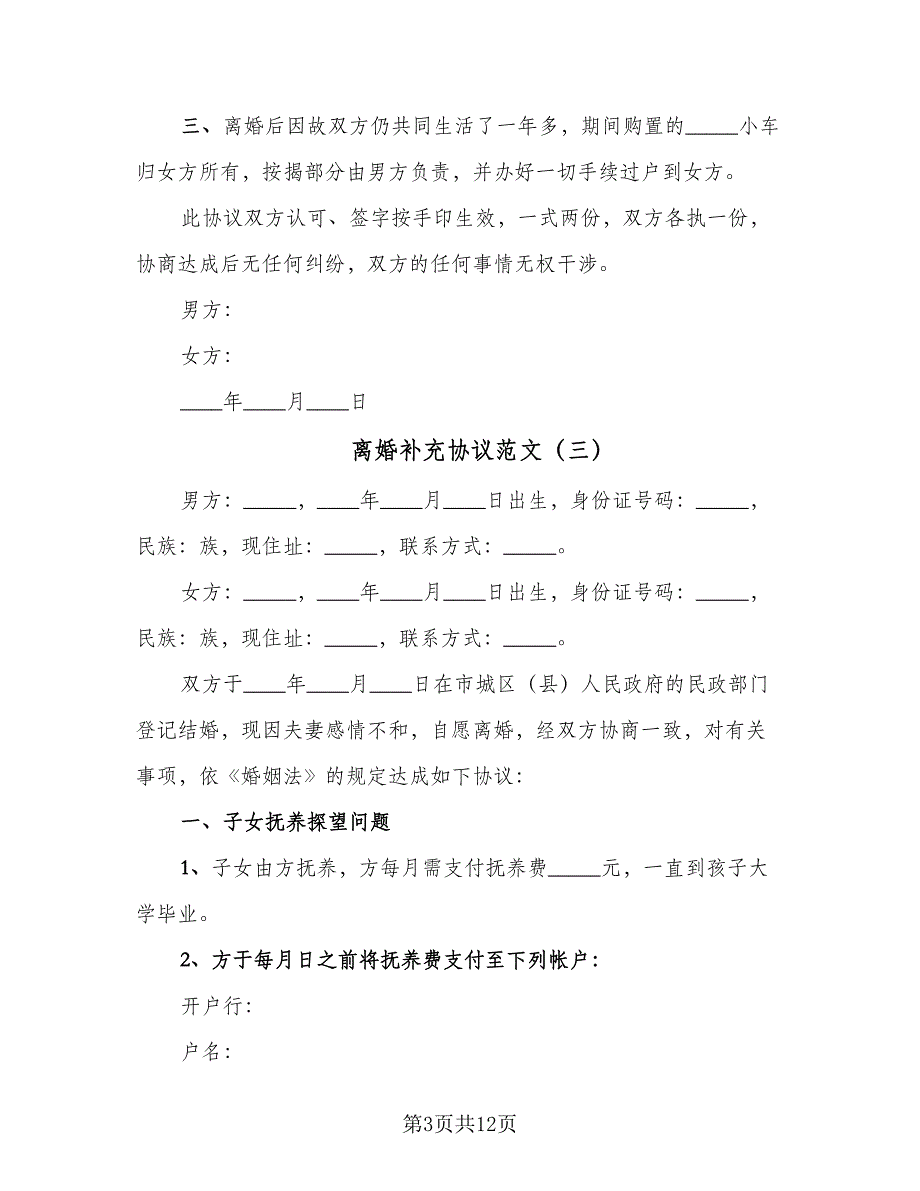 三、离婚后因故双方仍共同生活了一年多，期间购置的_____小车
归女方所有，按揭部分由男方负责，并办好一切手续过户到女方。
此协议双方认可、签字按手印生效，一式两份，双方各执一份，
协商达成后无任何纠纷，双方的任何事情无权干涉。
男方：
女方：
____年____月____日
离婚补充协议范文（三）
男方：_____，____年____月____日出生，身份证号码：_____，
民族：族，现住址：_____，联系方式：_____。
女方：_____，____年____月____日出生，身份证号码：_____，
民族：族，现住址：_____，联系方式：_____。
双方于____年____月____日在市城区（县）人民政府的民政部门
登记结婚，现因夫妻感情不和，自愿离婚，经双方协商一致，对有关
事项，依《婚姻法》的规定达成如下协议：
一、子女抚养探望问题
1、子女由方抚养，方每月需支付抚养费_____元，一直到孩子大
学毕业。
2、方于每月日之前将抚养费支付至下列帐户：
开户行：
户名：
第3页共12页